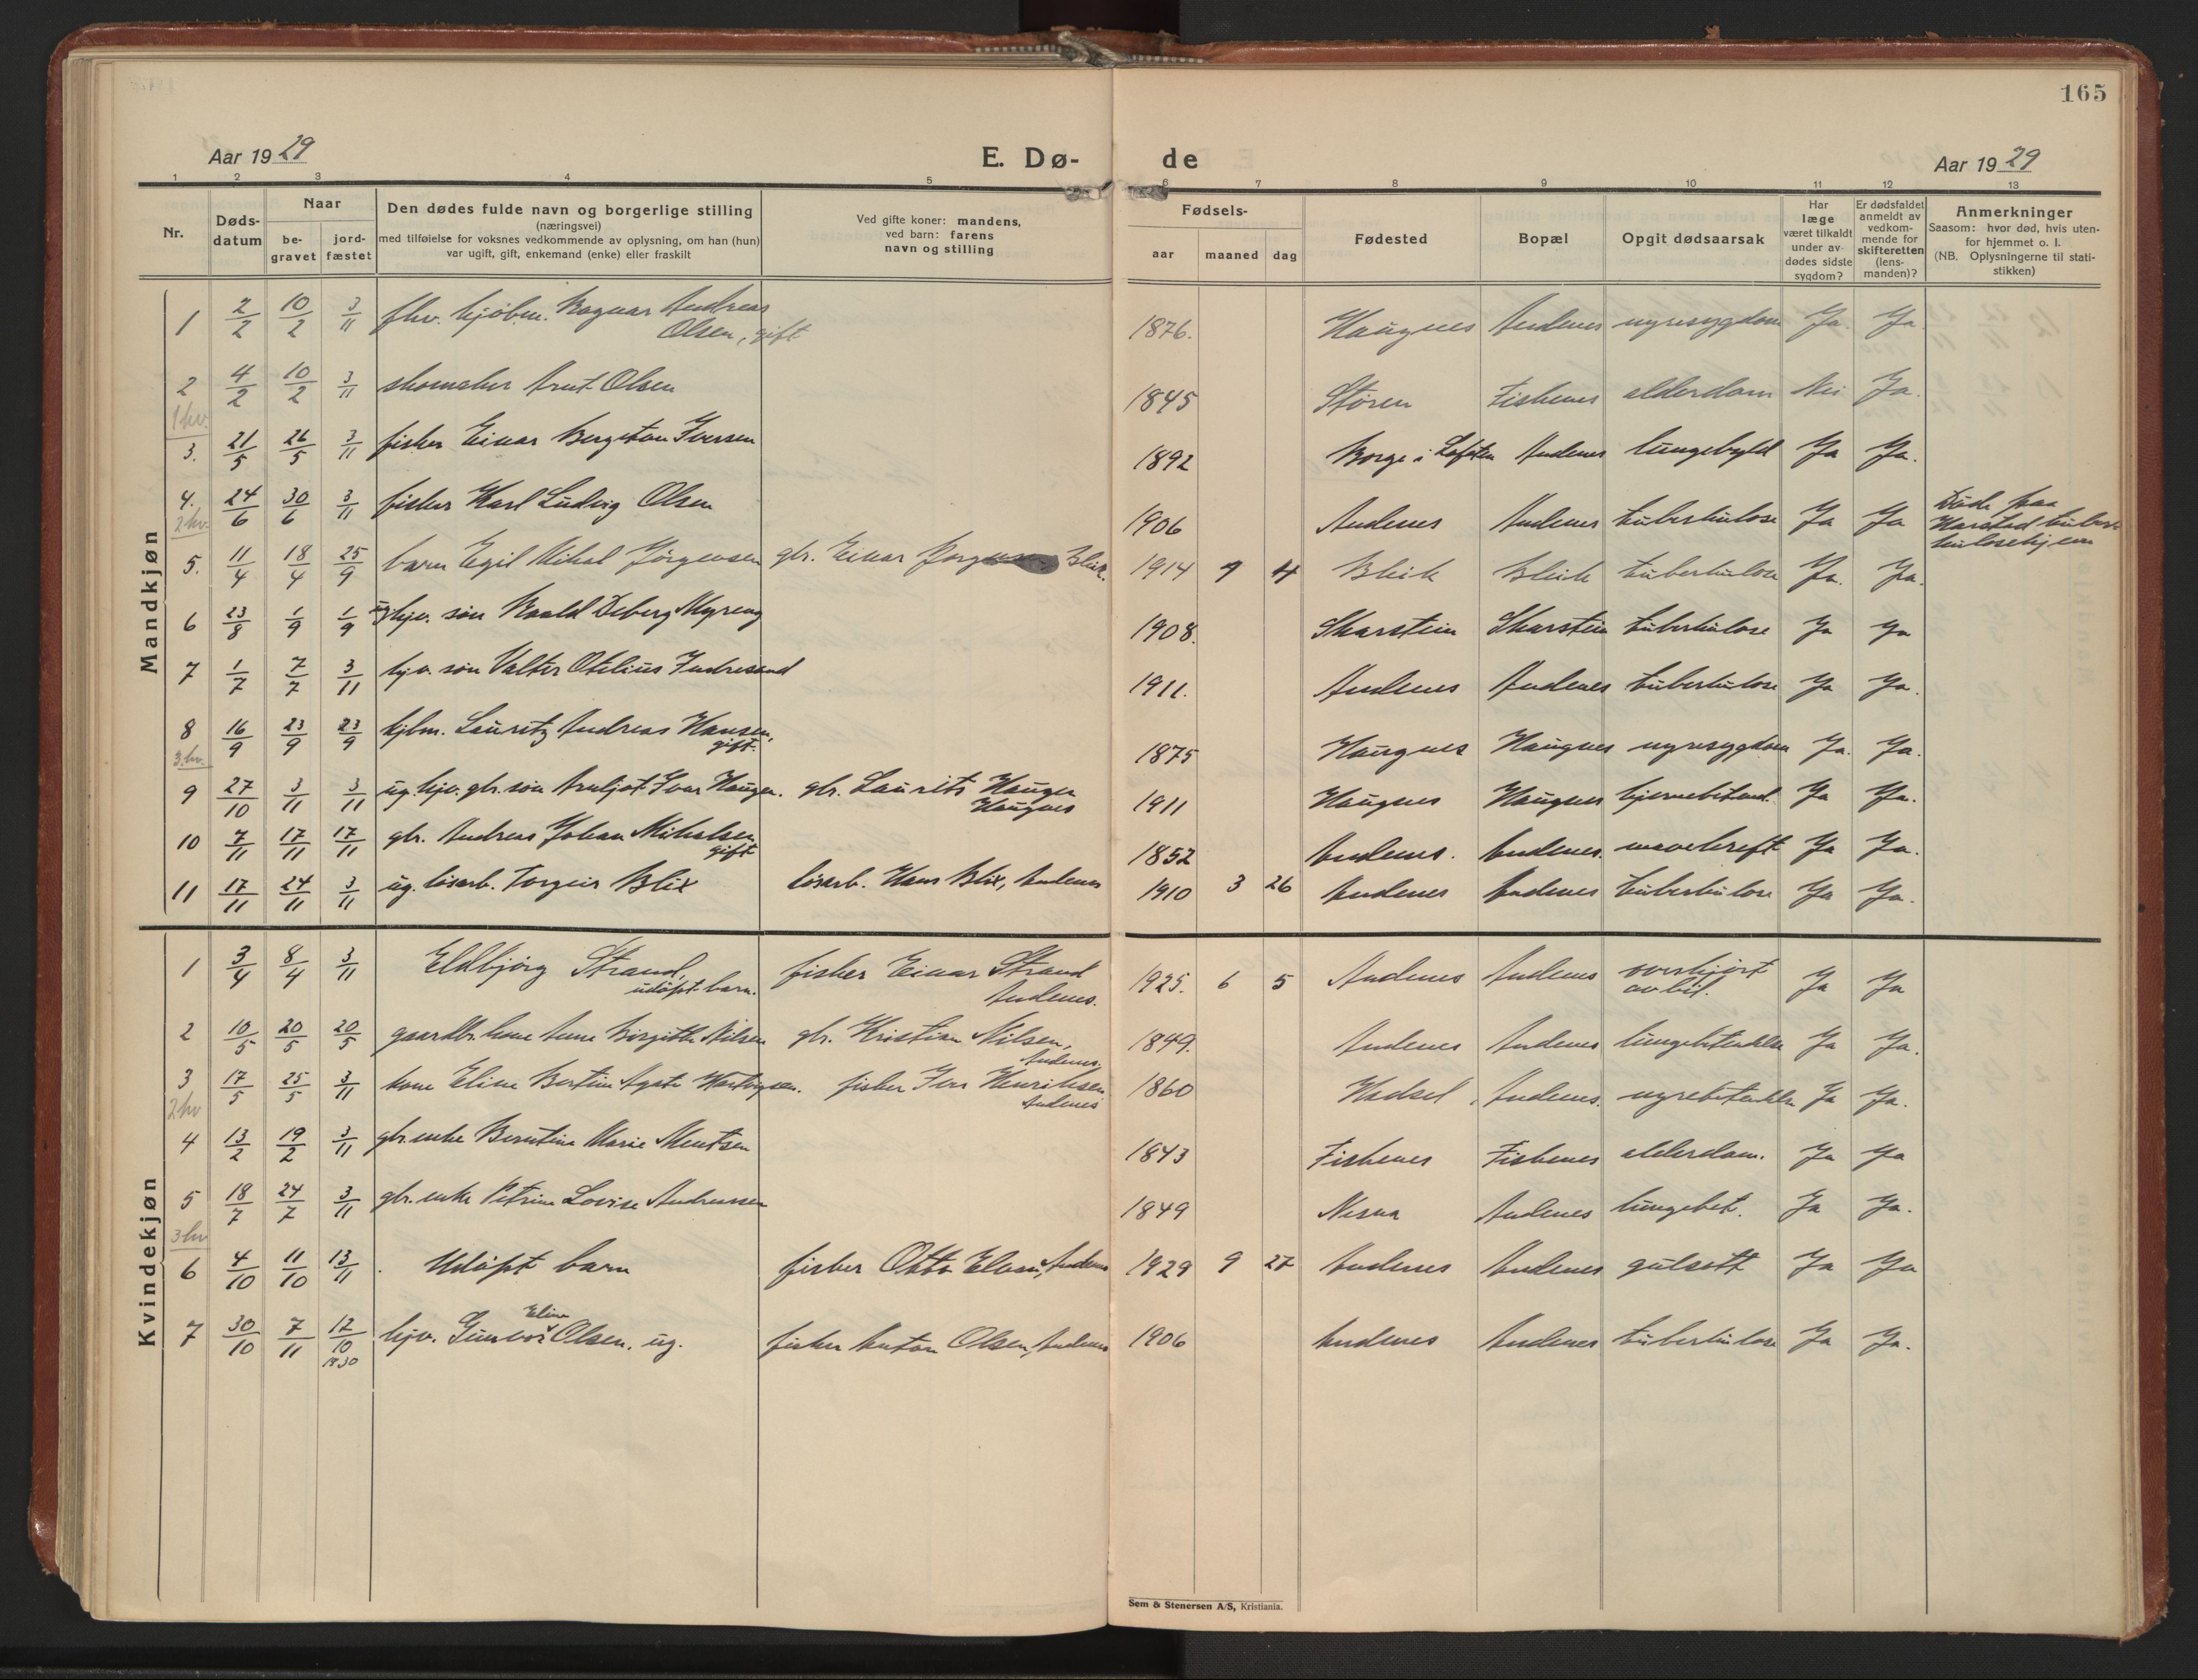 165
Aar 1929 E. Dø- de Aar 1929
1 2 3 4 5 6 7 8 9 10 11 12 13
Nr. Døds-datum Naar be-gravet jord-fæstet Den dødes fulde navn og borgerlige stilling (næringsvei) med tilføielse for voksnes vedkommende av oplysning, om han (hun) var ugift, gift, enkemand (enke) eller fraskilt Ved gifte koner: mandens, ved barn: farens navn og stilling Fødsels- aar maaned dag Fødested Bopæl Opgit dødsaarsak Har læge været tilkaldt under av-dødes sidste sygdom? Er dødsfaldet anmeldt av vedkom-mende for skifteretten (lens-manden)? Anmerkninger Saasom: hvor død, hvis uten-for hjemmet o. l. (NB. Oplysningerne til stati-stikken)
Mandkjøn
1 2/2 10/2 3/11 fhv. kjøbm. Ragnar Andreas Olsen, gift 1876. Haugnes Andenes nyresygdom Ja. Ja
2 4/2 10/2 3/11 skomaker Arnt Olsen 1845 Støren Fiskenes alderdom Nei Ja.
1 kv.
3. 21/5 26/5 3/11 fisker Einar Bergeton Iversen 1892 Borge i Lofoten Andenes lungebyld Ja Ja.
4. 24/6 30/6 3/11 fisker Karl Ludvig Olsen 1906 Andenes Andenes tuberkulose Ja Ja Døde paa Harstad tuberkulosehjem
2 kv.
5. 11/4 18/4 25/9 barn Egil Mikal Jørgensen gbr. Einar Bleik. 1914 9 4 Bleik Bleik tuberkulose Ja. Ja.
6 23/8 1/9 1/9 ug. hjv. søn Roald Deberg Myreng 1908. Skarstein Skarstein tuberkulose Ja Ja
7 1/7 7/7 3/11 hjv. søn Valter Otelius Indresand 1911. Andenes Andenes tuberkulose Ja Ja.
8 16/9 23/9 23/9 kjbm. Lauritz Andreas Hansen, gift. 1875 Haugnes Haugnes nyresygdom Ja. Ja.
3. kv.
9 27/10 3/11 3/11 ug. hjv. gbr. søn Arnljot Ivar Haugen. gbr. Laurits Haugen Haugnes 1911 Haugnes Haugnes hjernebetænd. Ja Ja.
10 7/11 17/11 17/11 gbr. Andreas Johan Mikalsen gift 1852 Andenes. Andenes. mavekreft Ja Ja.
11 17/11 24/11 3/11 ug. løsarb. Torgeir Blix løsarb. Hans Blix, Andenes 1910 3 26 Andenes Andenes tuberkulose Ja Ja.
Kvindekjøn
1 3/4 8/4 3/11 Eldbjørg Strand, udøpt barn. fisker Einar Strand Andenes. 1925. 6 5 Andenes Andenes overkjørt av bil. Ja Ja
2 10/5 20/5 20/5 gaardbr. kone Anne Birgitte Nilsen gbr. Kristian Nilsen, Andenes. 1849. Andenes Andenes lungebetændelse Ja Ja.
3 17/5 25/5 3/11 kone Eline Bertine Agate fisker Iver Henriksen Andenes 1860 Hadsel Andenes. nyrebetændelse Ja Ja.
2 kv
4 13/2 19/2 3/11 gbr. enke Berntine Marie Mentsen 1843 Fiskenes Fiskenes alderdom. Ja Ja
5 18/7 24/7 3/11 gbr. enke Petrine Lovise Andreassen 1849 Nesna Andenes lungebet. Ja Ja.
3 kv
6 4/10 11/10 13/11 Udøpt barn fisker Otto Andenes 1929 9 27 Andenes Andenes gulsott Ja Ja
7 30/10 7/11 12/10 1930 hjv. Gunvor Eline Olsen. ug. fisker Anton Olsen, Andenes 1906 Andenes Andenes tuberkulose Ja Ja.
Sem & Stenersen A/S, Kristiania.